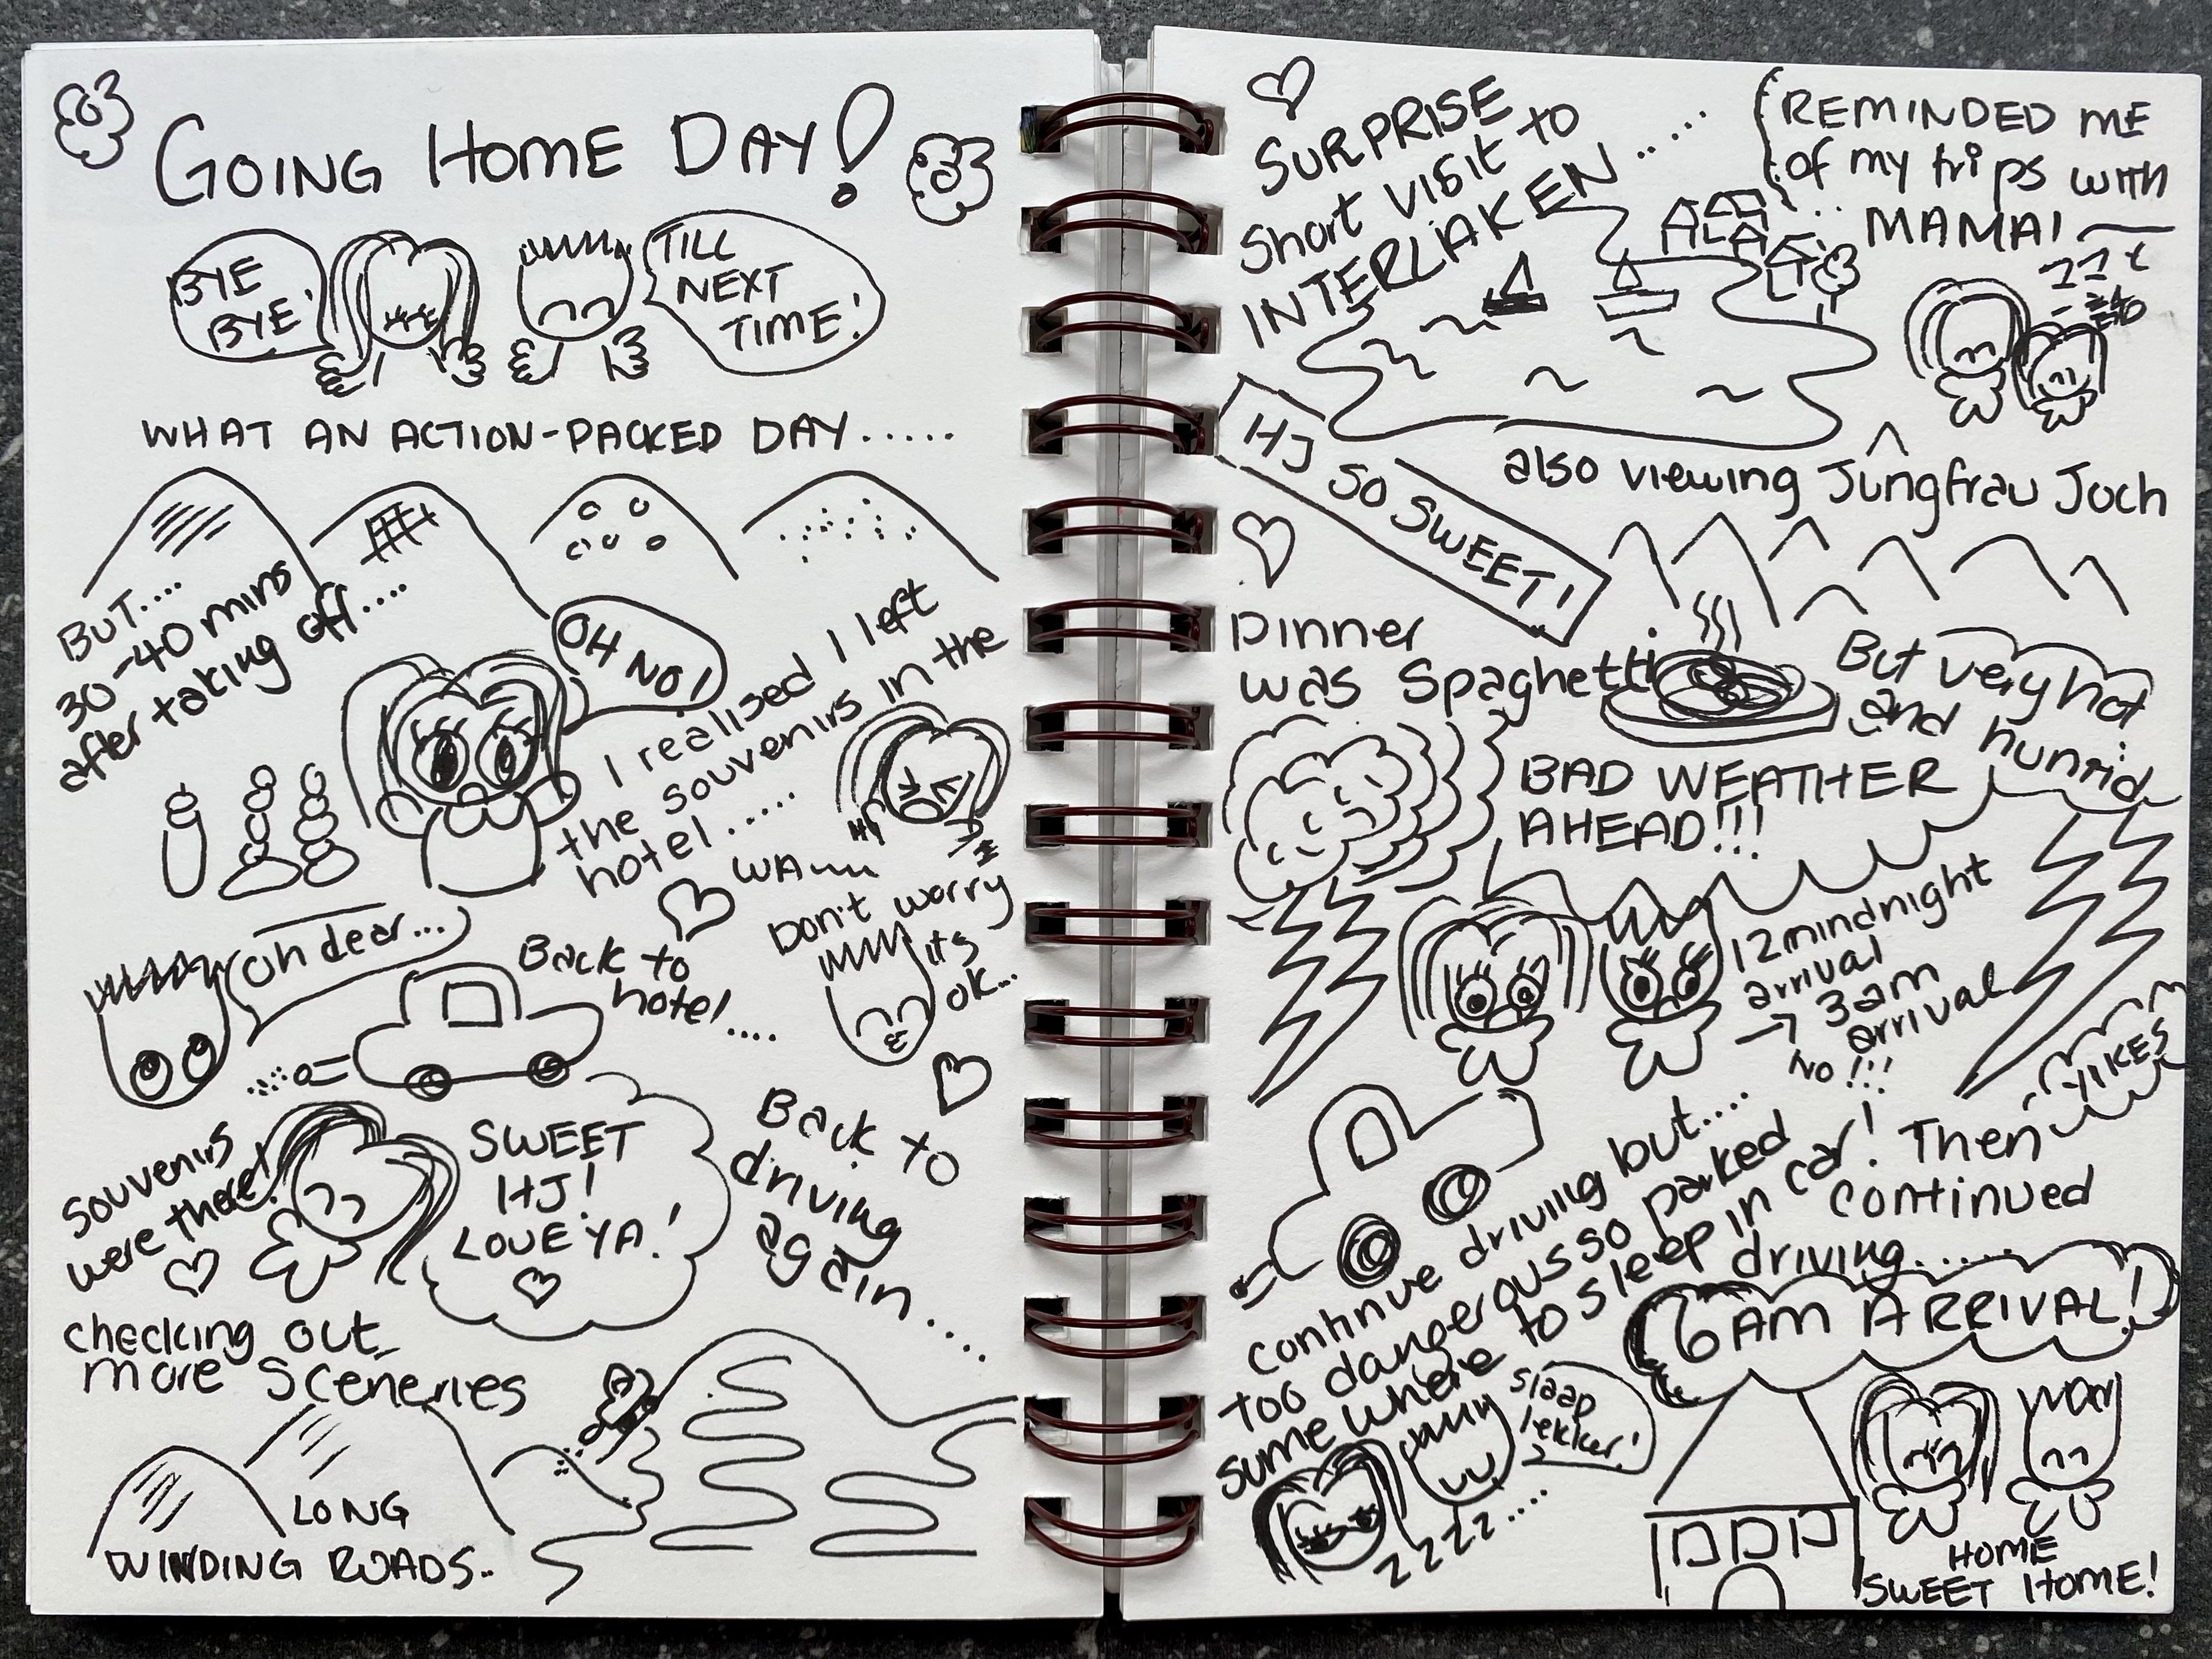 GOING HOME DAY!
BYE
BYE!
TILL
NEXT
TIME!
WHAT AN ACTION-PACKED DAY.....
BUT....
30-40 mins
after taking off....
OH NO!
I realised I left
the souvenirs in the
hotel.....
WA
Oh dear...
Back to
hotel....
Don't worry
its
ok...
souvenirs
were there!
SWEET
HJ!
LOVE YA!
Back to
driving
again....
checking out
more sceneries
LONG
WINDING ROADS..
SURPRISE
Short visit to
INTERLAKEN.....
REMINDED ME
of my trips with
MAMA!
HJ SO SWEET!
also viewing Jungfrau Joch
Dinner
was Spaghetti
But very hot
and hunrid
BAD WEATHER
AHEAD!!!
12 mindnight
arrival
→ 3am
arrival
NO!!!
YIKES
continue driving but....
too dangerous so parked
somewhere to sleep in car! Then
continued
driving.....
slaap
lekker!
zzzz....
6AM ARRIVAL!
HOME
SWEET HOME!